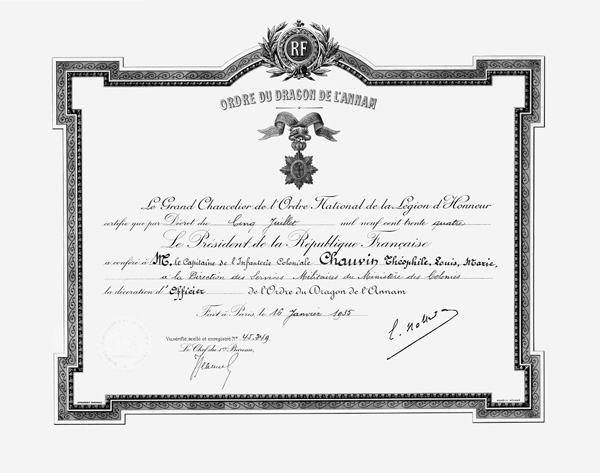 RF
ORDRE DU DRAGON DE L'ANNAM
Le Grand Chancelier de l'Ordre National de la Légion d'Honneur
certifie que par Décret du Cinq Juillet mil neuf cent trente quatre
Le Président de la République Française
a conféré à M. le Capitaine de l'Infanterie Coloniale Chauvin Théophile, Louis, Marie,
à la Direction des Services Militaires du Ministère des Colonies
la décoration d'Officier de l'Ordre du Dragon de l'Annam
Fait à Paris, le 16 Janvier 1935
Vu, vérifié, scellé et enregistré N° 45.349
Le Chef du 1er Bureau,